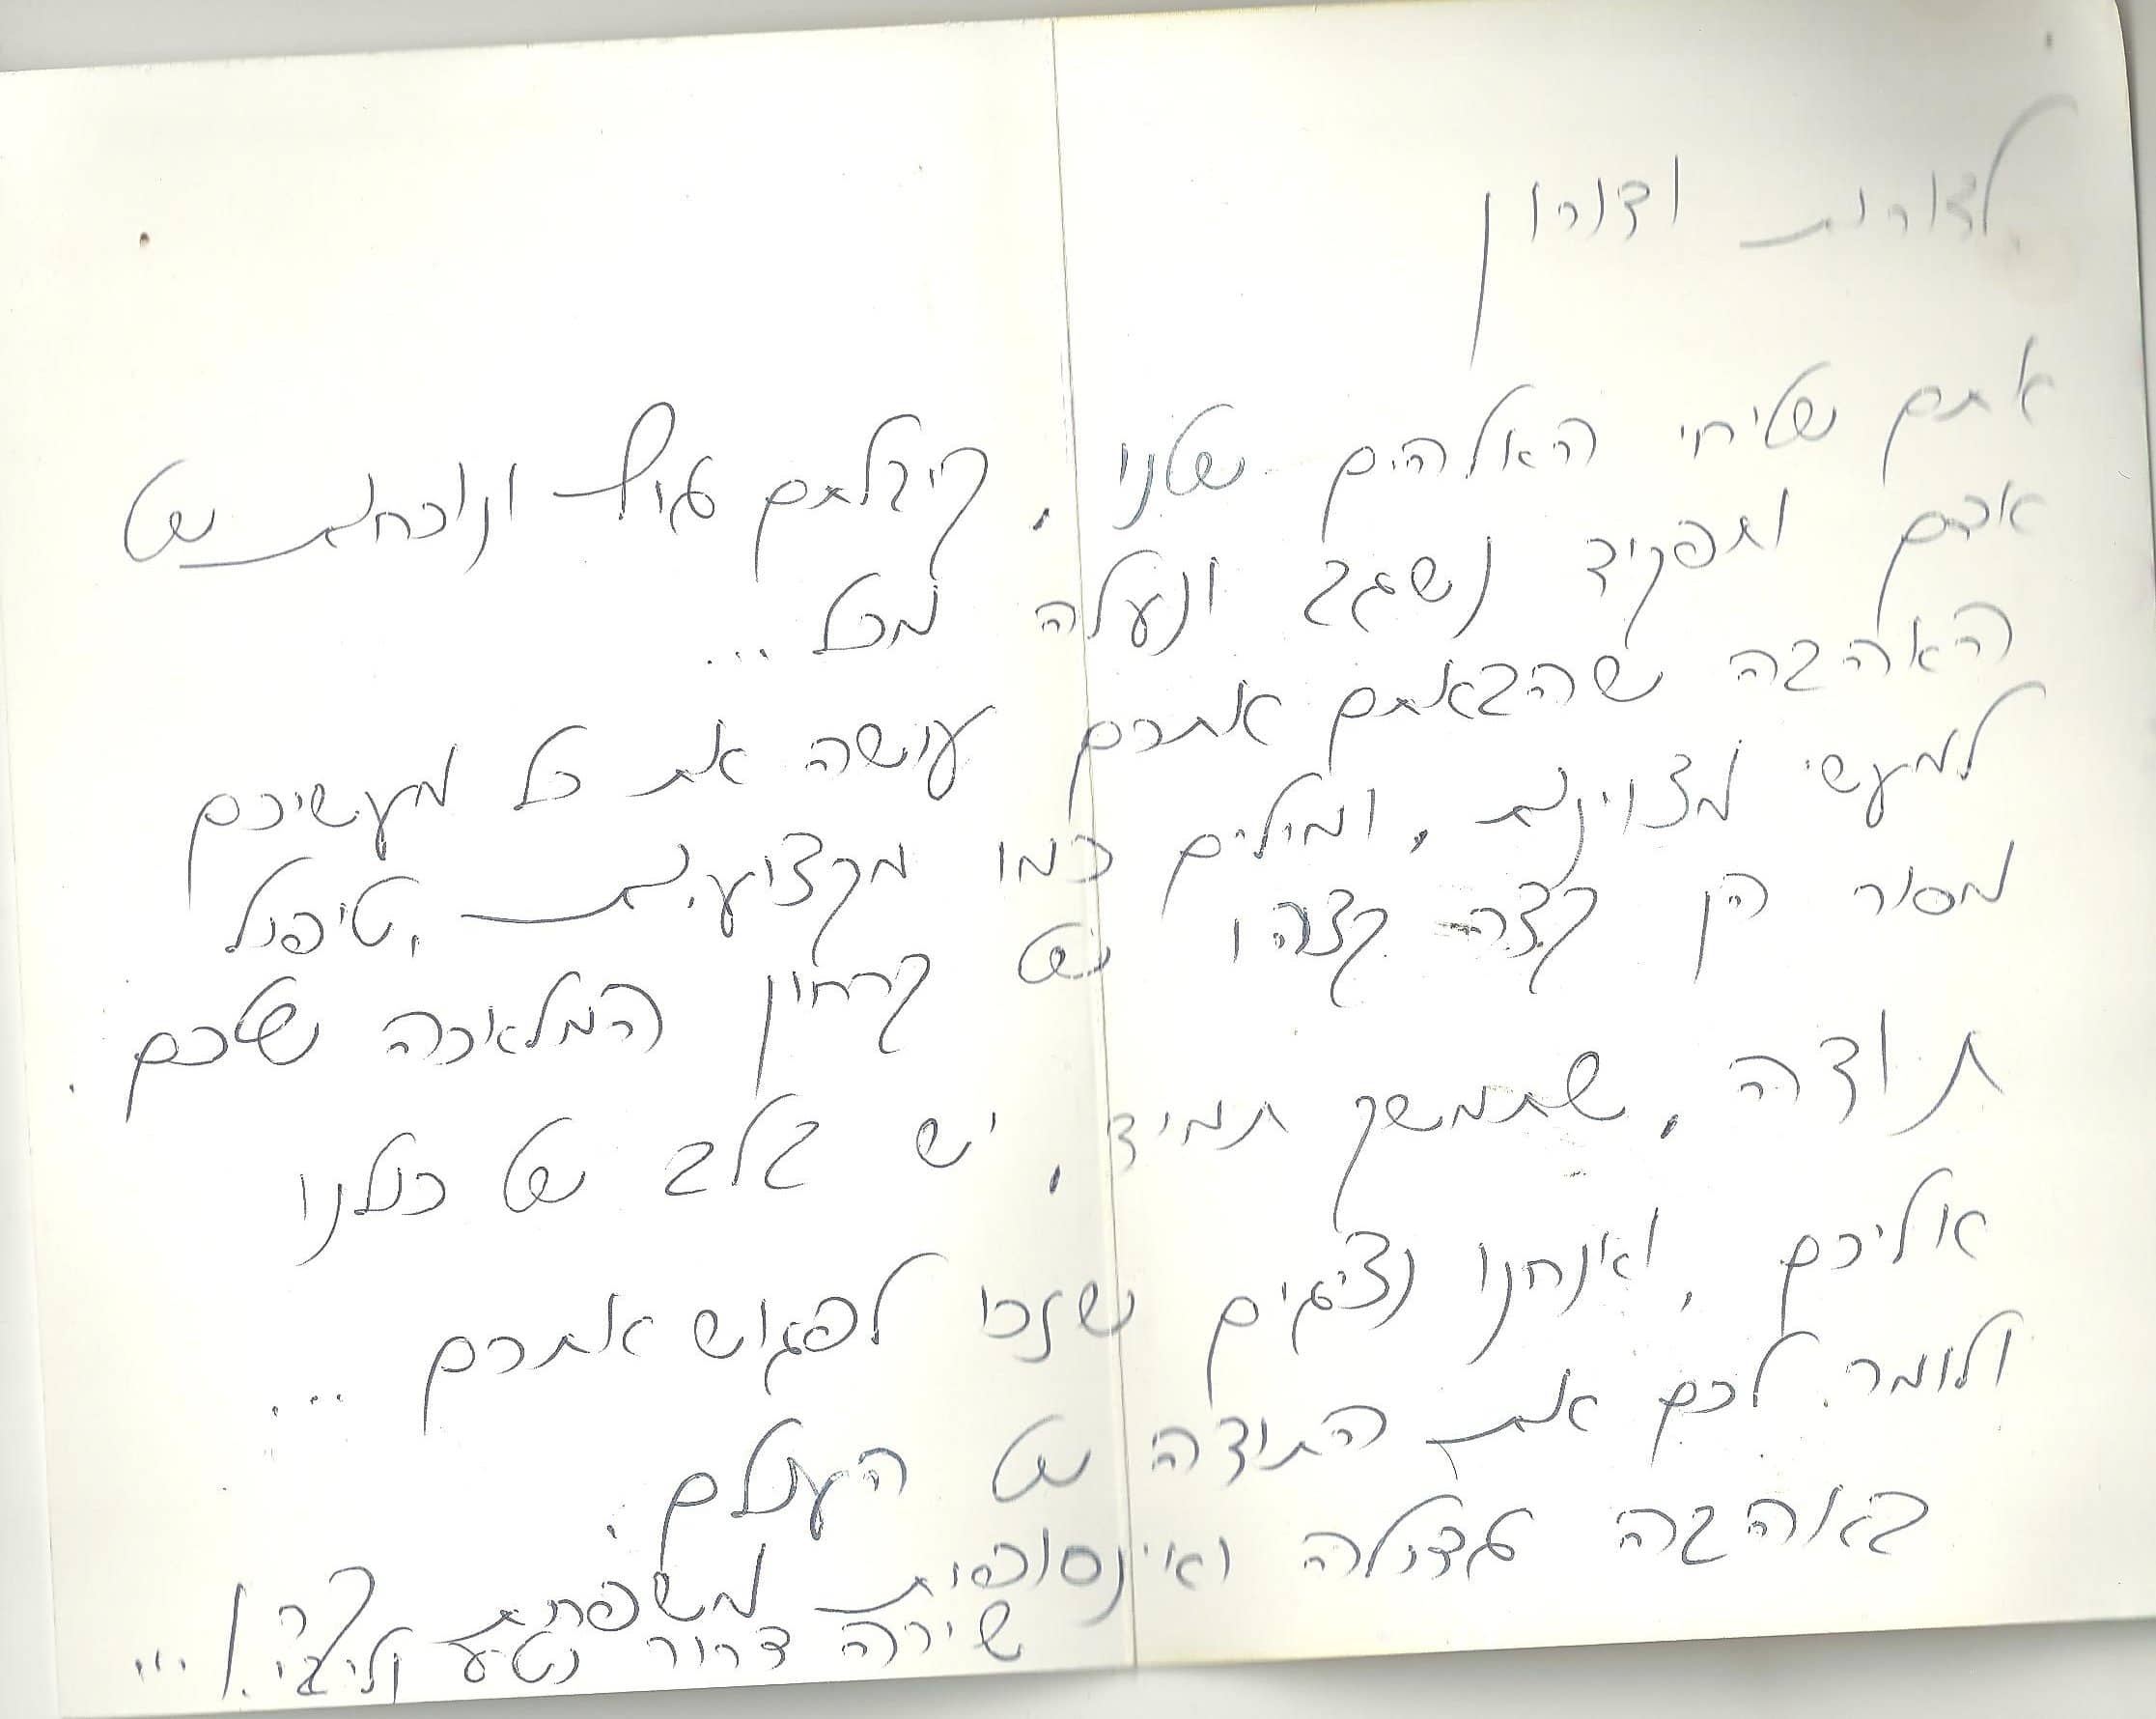 לדורית ודורון
אתם שליחי האלהים שלנו. קיבלתם גוף ונוכחות של
אדם ותפקיד נשגב ונעלה מכל ...
האהבה שהבאתם אתכם עושה את כל מעשיכם
למעשי מצוינות. ומילים כמו מקצועיות, טיפול
מסור הן קצה קצהו של קרחון המלאכה שלכם.
תודה, שתמשך תמיד, יש בלב של כולנו
אליכם, ואנחנו נציגים שזכו לפגוש אתכם ...
ולומר לכם את התודה של העולם.
באהבה גדולה ואינסופית משפחת
שירה דרור נטע